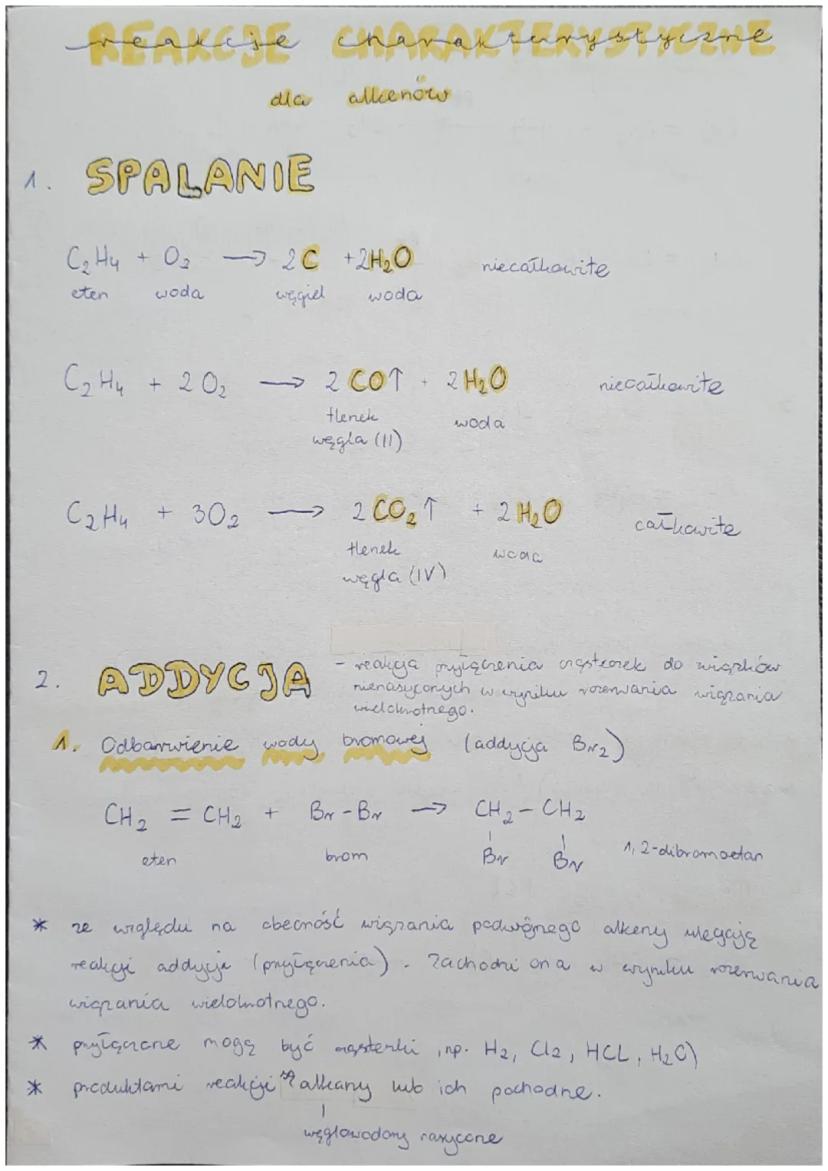 REAKCJE CHARAKTERYSTYCZNE
reakcje charakterystyczne
dla alkenów
1. SPALANIE
C₂H₄ + O₂ → 2C + 2H₂O niecałkowite
eten woda węgiel woda
C₂H₄ + 2O₂ → 2CO↑ + 2H₂O niecałkowite
tlenek woda
węgla (II)
C₂H₄ + 3O₂ → 2CO₂↑ + 2H₂O całkowite
tlenek woda
węgla (IV)
2. ADDYCJA - reakcja przyłączenia cząsteczek do związków
nienasyconych w wyniku rozerwania wiązania
wielokrotnego.
1. Odbarwienie wody bromowej (addycja Br₂)
CH₂ = CH₂ + Br - Br → CH₂ - CH₂
eten brom Br Br 1,2-dibromoetan
* ze względu na obecność wiązania podwójnego alkeny ulegają
reakcji addycji (przyłączenia). Zachodzi ona w wyniku rozerwania
wiązania wielokrotnego.
* przyłączane mogą być cząsteczki, np. H₂, Cl₂, HCL, H₂O)
* produktami reakcji są alkany lub ich pochodne.
węglowodory nasycone